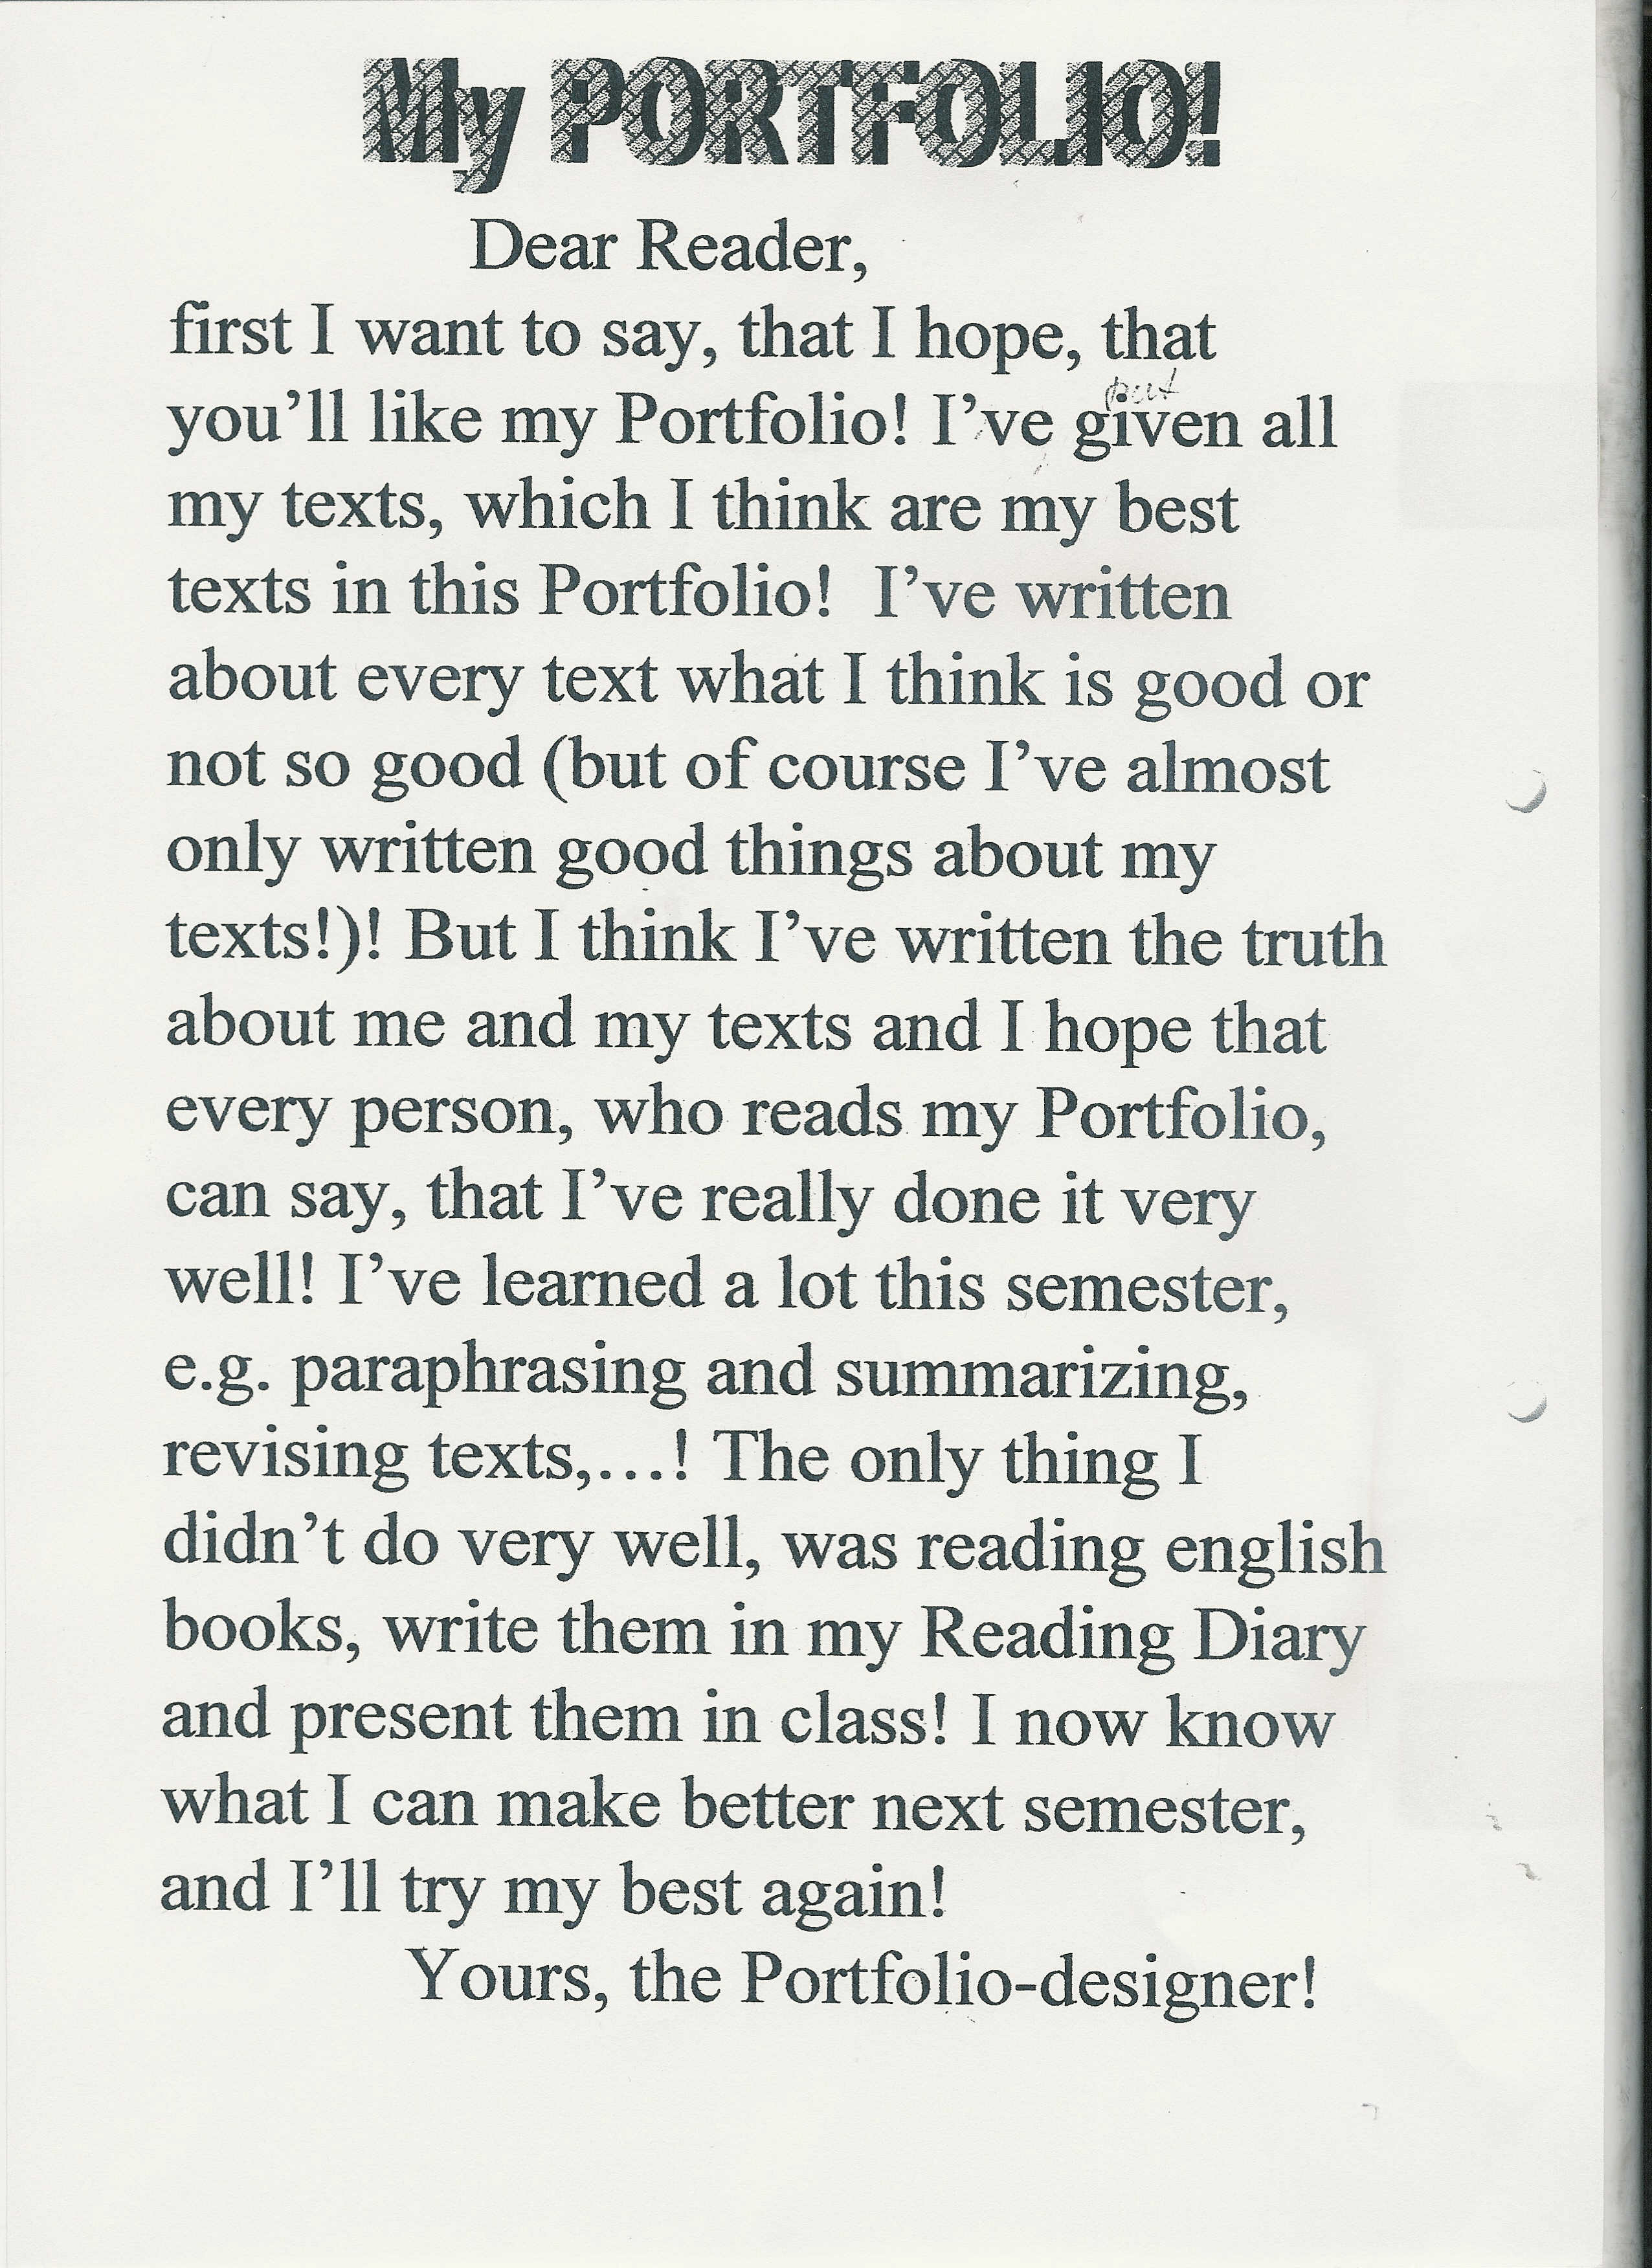 My PORTFOLIO!
Dear Reader,
first I want to say, that I hope, that
put
you’ll like my Portfolio! I’ve given all
my texts, which I think are my best
texts in this Portfolio!  I’ve written
about every text what I think is good or
not so good (but of course I’ve almost
only written good things about my
texts!)! But I think I’ve written the truth
about me and my texts and I hope that
every person, who reads my Portfolio,
can say, that I’ve really done it very
well! I’ve learned a lot this semester,
e.g. paraphrasing and summarizing,
revising texts,…! The only thing I
didn’t do very well, was reading english
books, write them in my Reading Diary
and present them in class! I now know
what I can make better next semester,
and I’ll try my best again!
Yours, the Portfolio-designer!